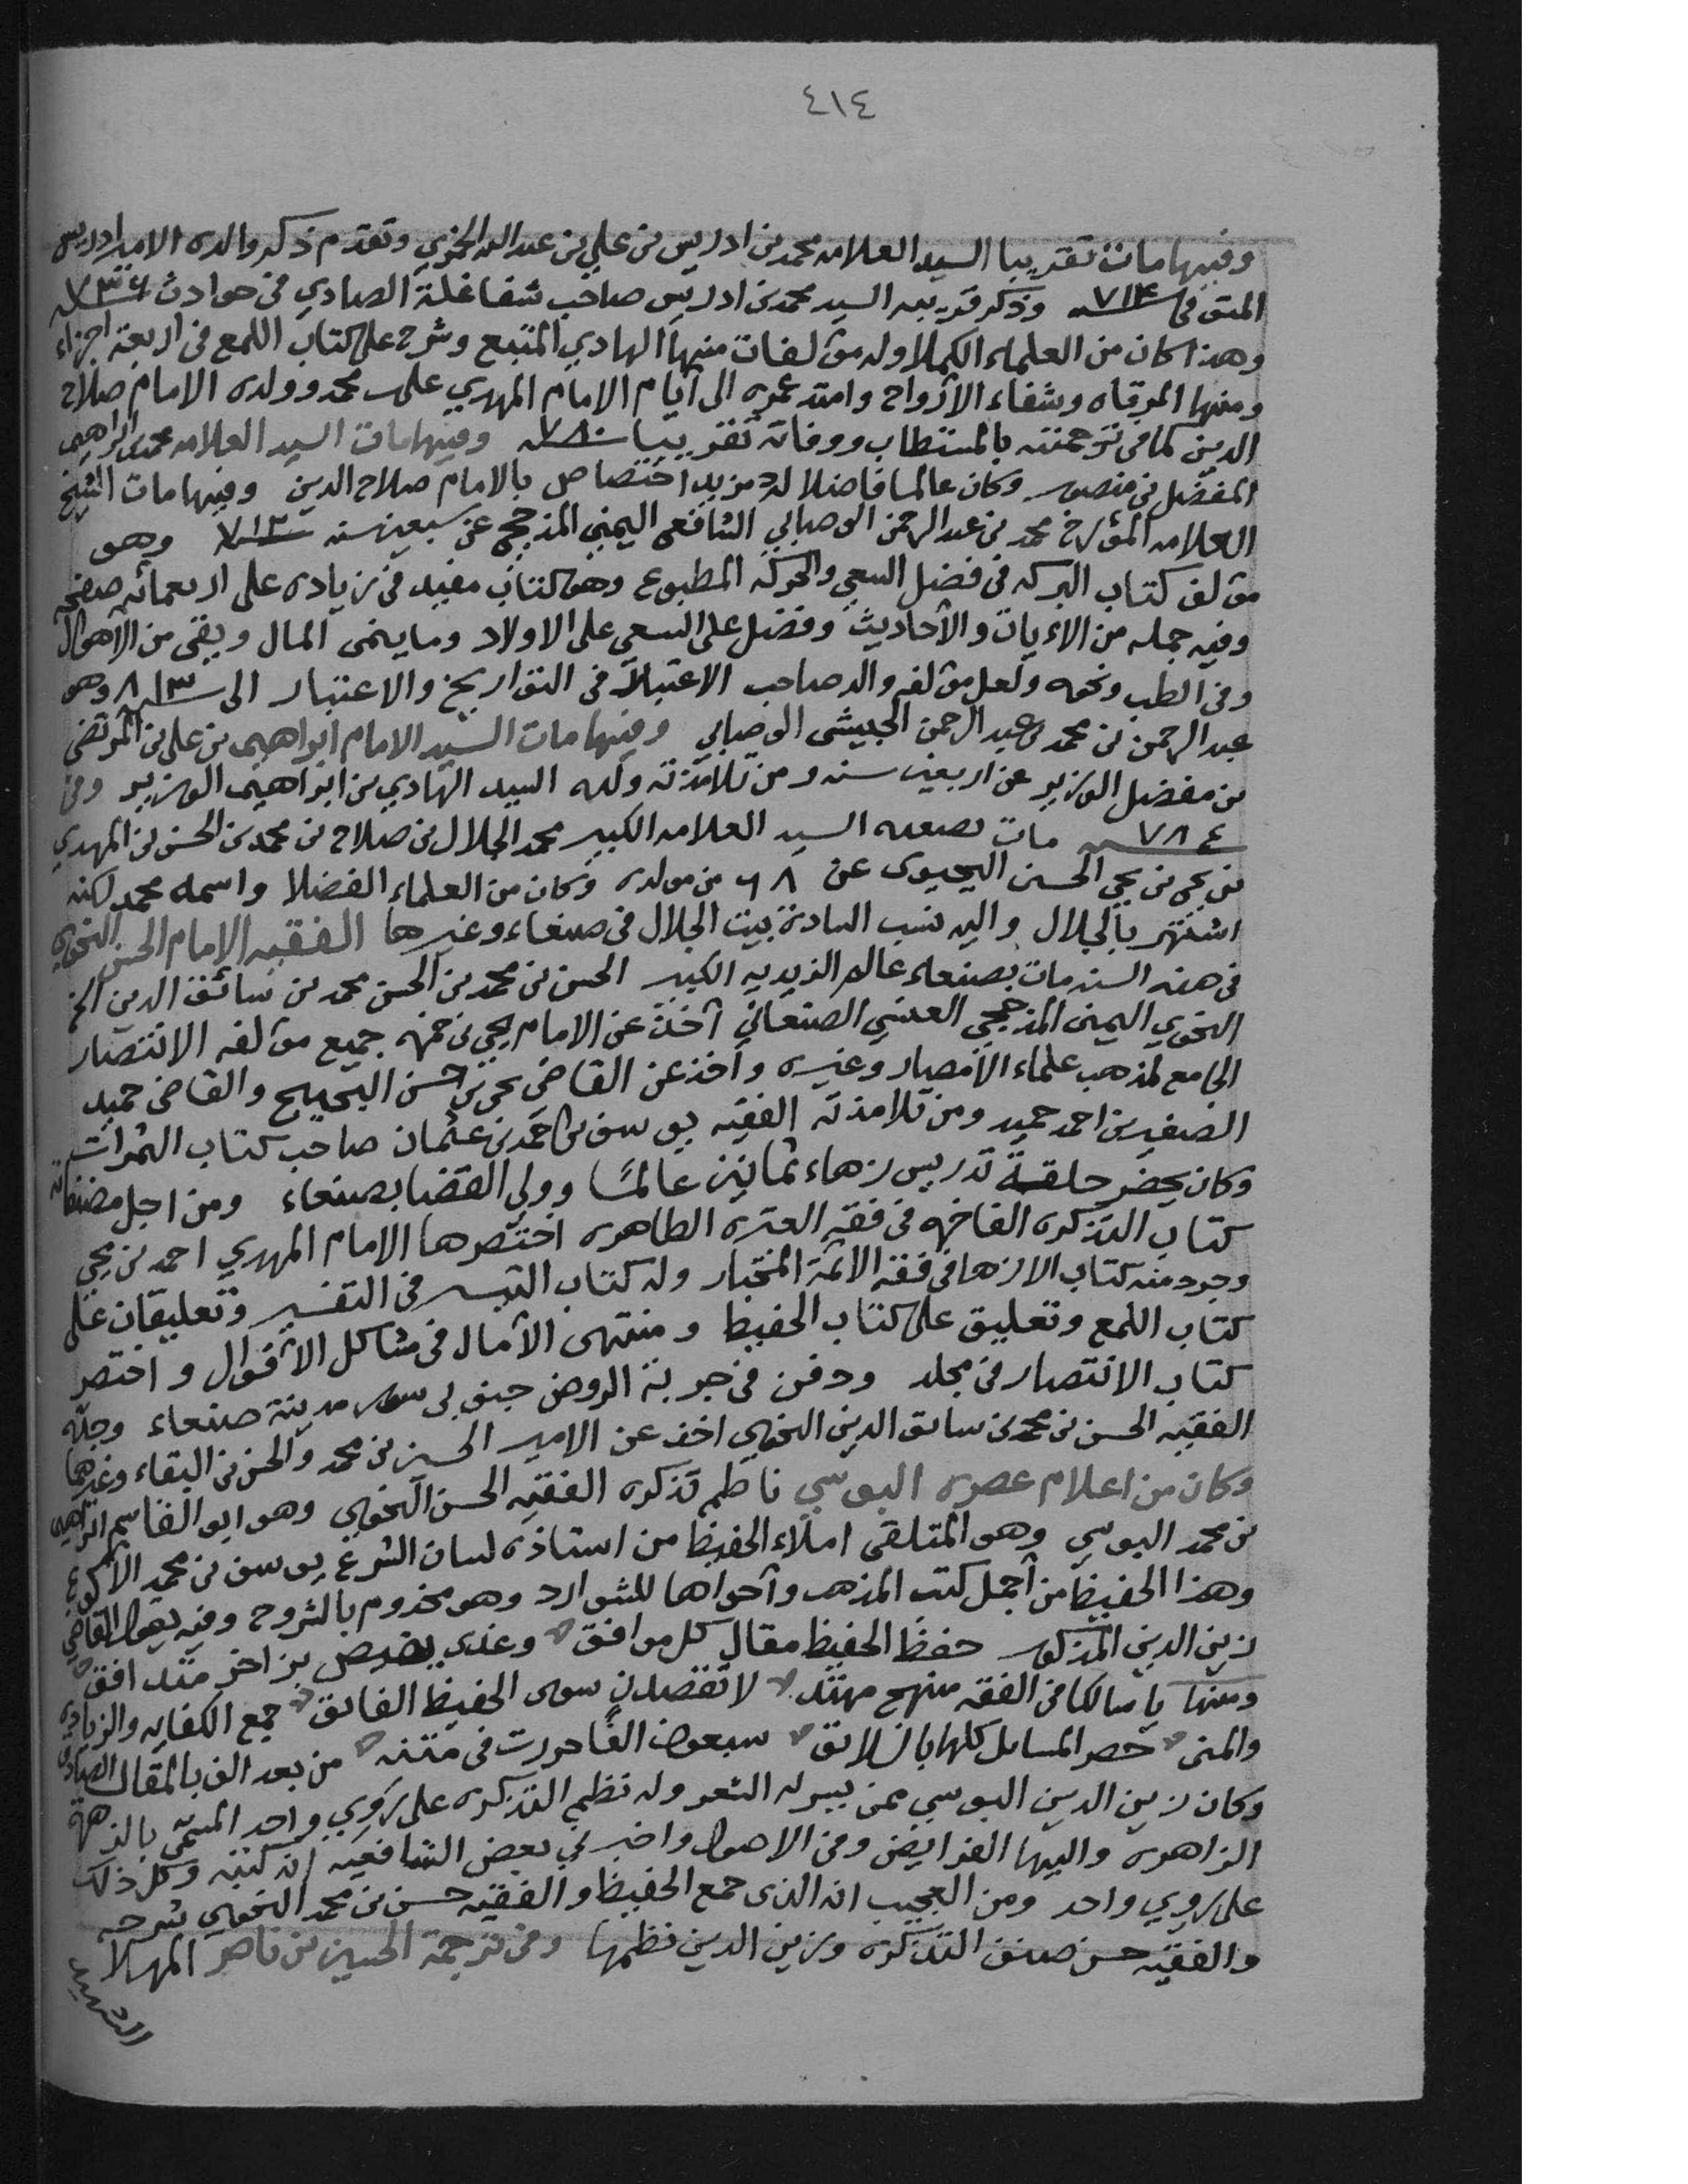 ٤١٤
وفيها مات تقريبا السيد العلامه محمد بن ادريس بن علي بن عبدالله الحمزي وتقدم ذكر والده الامير ادريس
المتوفى ٧١٤ـنه وذكر قريبه السيد محمد بن ادريس صاحب شفا غلة الصادي في حوادث
وهذا كان من العلماء الكملا وله مؤلفات منها الهادي المتبع وشرح على كتاب اللمع في اربعة اجزاء
ومنها المرقاه وشفاء الأرواح وامتد عمره الى أيام الامام المهدي علي محمد وولده الامام صلاح
الدين كما في ترجمته بالمستطاب ووفاته تقريبا ٧٨٠ـنه وفيها مات السيد العلامه محمد ابراهيم
المفضل بن منصور وكان عالما فاضلا له مزيد اختصاص بالامام صلاح الدين وفيها مات الشيخ
العلامه المؤرخ محمد بن عبدالرحمن الوصابي الشافعي اليمني المذحجي عن سبعين سنه وهو
مؤلف كتاب البركه في فضل السعي والحركه المطبوع وهو كتاب مفيد في زياده على اربعمائه صفحه
وفيه جمله من الاءيات والأحاديث وفضل على السعي على الاولاد وما ينمى المال ويقى من الأهوال
وفي الطب ونحوه ولعل مؤلفه والد صاحب الاعتبار في التواريخ والاعتبار الى وهو
عبدالرحمن بن محمد بن عبدالرحمن الحبيشى الوصابي وفيها مات السيد الامام ابراهيم بن علي بن المرتضى
بن مفضل الوزير عن اربعين سنه ومن تلامذته ولده السيد الهادي بن ابراهيم الوزير وفي
٧٨٤ـنه مات بصعده السيد العلامه الكبير محمد الجلال بن صلاح بن محمد بن الحسن بن المهدي
بن يحي بن يحي الحسن اليحيوى عن ٦٨ من مولده وكان من العلماء الفضلا واسمه محمد لكنه
اشتهر بالجلال واليه نسب السادة بيت الجلال في صنعاء وغيرها الفقيه الإمام الحسن النحوي
في هذه السنه مات بصنعاء عالم الزيديه الكبير الحسن بن محمد بن الحسن محمد بن سائق الدين الخ
النحوي اليمني المذحجي العنسي الصنعاني أخذ عن الامام يحي بن حمزه جميع مؤلفه الانتصار
الجامع لمذهب علماء الأمصار وغيره وأخذ عن القاضي يحي بن حسن البحيح والقاضي حميد
الصغير بن احمد حميد ومن تلامذته الفقيه يوسف بن احمد بن عثمان صاحب كتاب الثمرات
وكان يحضر حلقة تدريس زهاء ثمانين عالمًا وولي القضا بصنعاء ومن اجل مصنفاته
كتاب التذكره الفاخره في فقه العتره الطاهره اختصرها الامام المهدي احمد بن يحي
وجرد منه كتاب الازها في فقه الائمة المختار وله كتاب التيسر في التفسير وتعليقان على
كتاب اللمع وتعليق على كتاب الحفيظ ومنتهى الآمال في مشاكل الأقوال واختصر
كتاب الانتصار في مجلد ودفن في جربة الروض جنوبى سور مدينة صنعاء وجده
الفقيه الحسن بن محمد بن سابق الدين النحوي اخذ عن الامير الحسين بن محمد والحسن بن البقاء وغيرهما
وكان من اعلام عصره البوسي ناظم تذكره الفقيه الحسن النحوي وهو ابو القاسم ابراهيم
بن محمد البوسي وهو المتلقى املاء الحفيظ من استاذه لسان الشرع يوسف بن محمد الأكوع
وهذا الحفيظ من أجمل كتب المذهب وأحواها للشوارد وهو مخدوم بالشروح وفيه يقول القاضي
زين الدين المذكور حفظ الحفيظ مقال كل موافق وغدى متدافق
ومنها يا سالكا في الفقه منهج مهتد لا تقصدن سوى الحفيظ الفائق جمع الكفايه والزيادة
والمنى حصر المسايل كلها سبعون الفًا حررت في متنه من بعد الف بالمقال الصادق
وكان زين الدين البوسي ممن يسر له الشعر وله نظم التذكره على روي واحد المسمى بالزهرة
الزاهره واليها الفرايض وفي الاصول واخبرني بعض الشافعيه ان كتبته وكل ذلك
على روي واحد ومن العجيب انه الذى جمع الحفيظ والفقيه حسن بن محمد النحوي شرحه
والفقيه حسن صنف التذكره وزين الدين نظمها وفي ترجمة الحسين بن ناصر المهلا
الشهيد